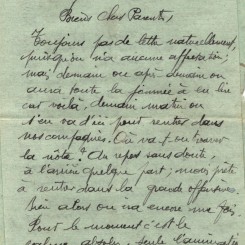 Biens Chers Parents,
Toujours pas de lettre naturellement,
puisqu'on n'a aucune affectation;
mais demain ou après demain on
aura toute la journée à en lire
car voilà, demain matin on
s'en va d'ici pour rentrer dans
nos compagnies. Où va t-on trouver
la nôtre? Au repos sans doute,
à l'arrière quelque part, mais prête
à rentrer dans la grande offensive
alors on va encore ma foi
Pour le moment c'est le
calme absolu, seule l'aviation